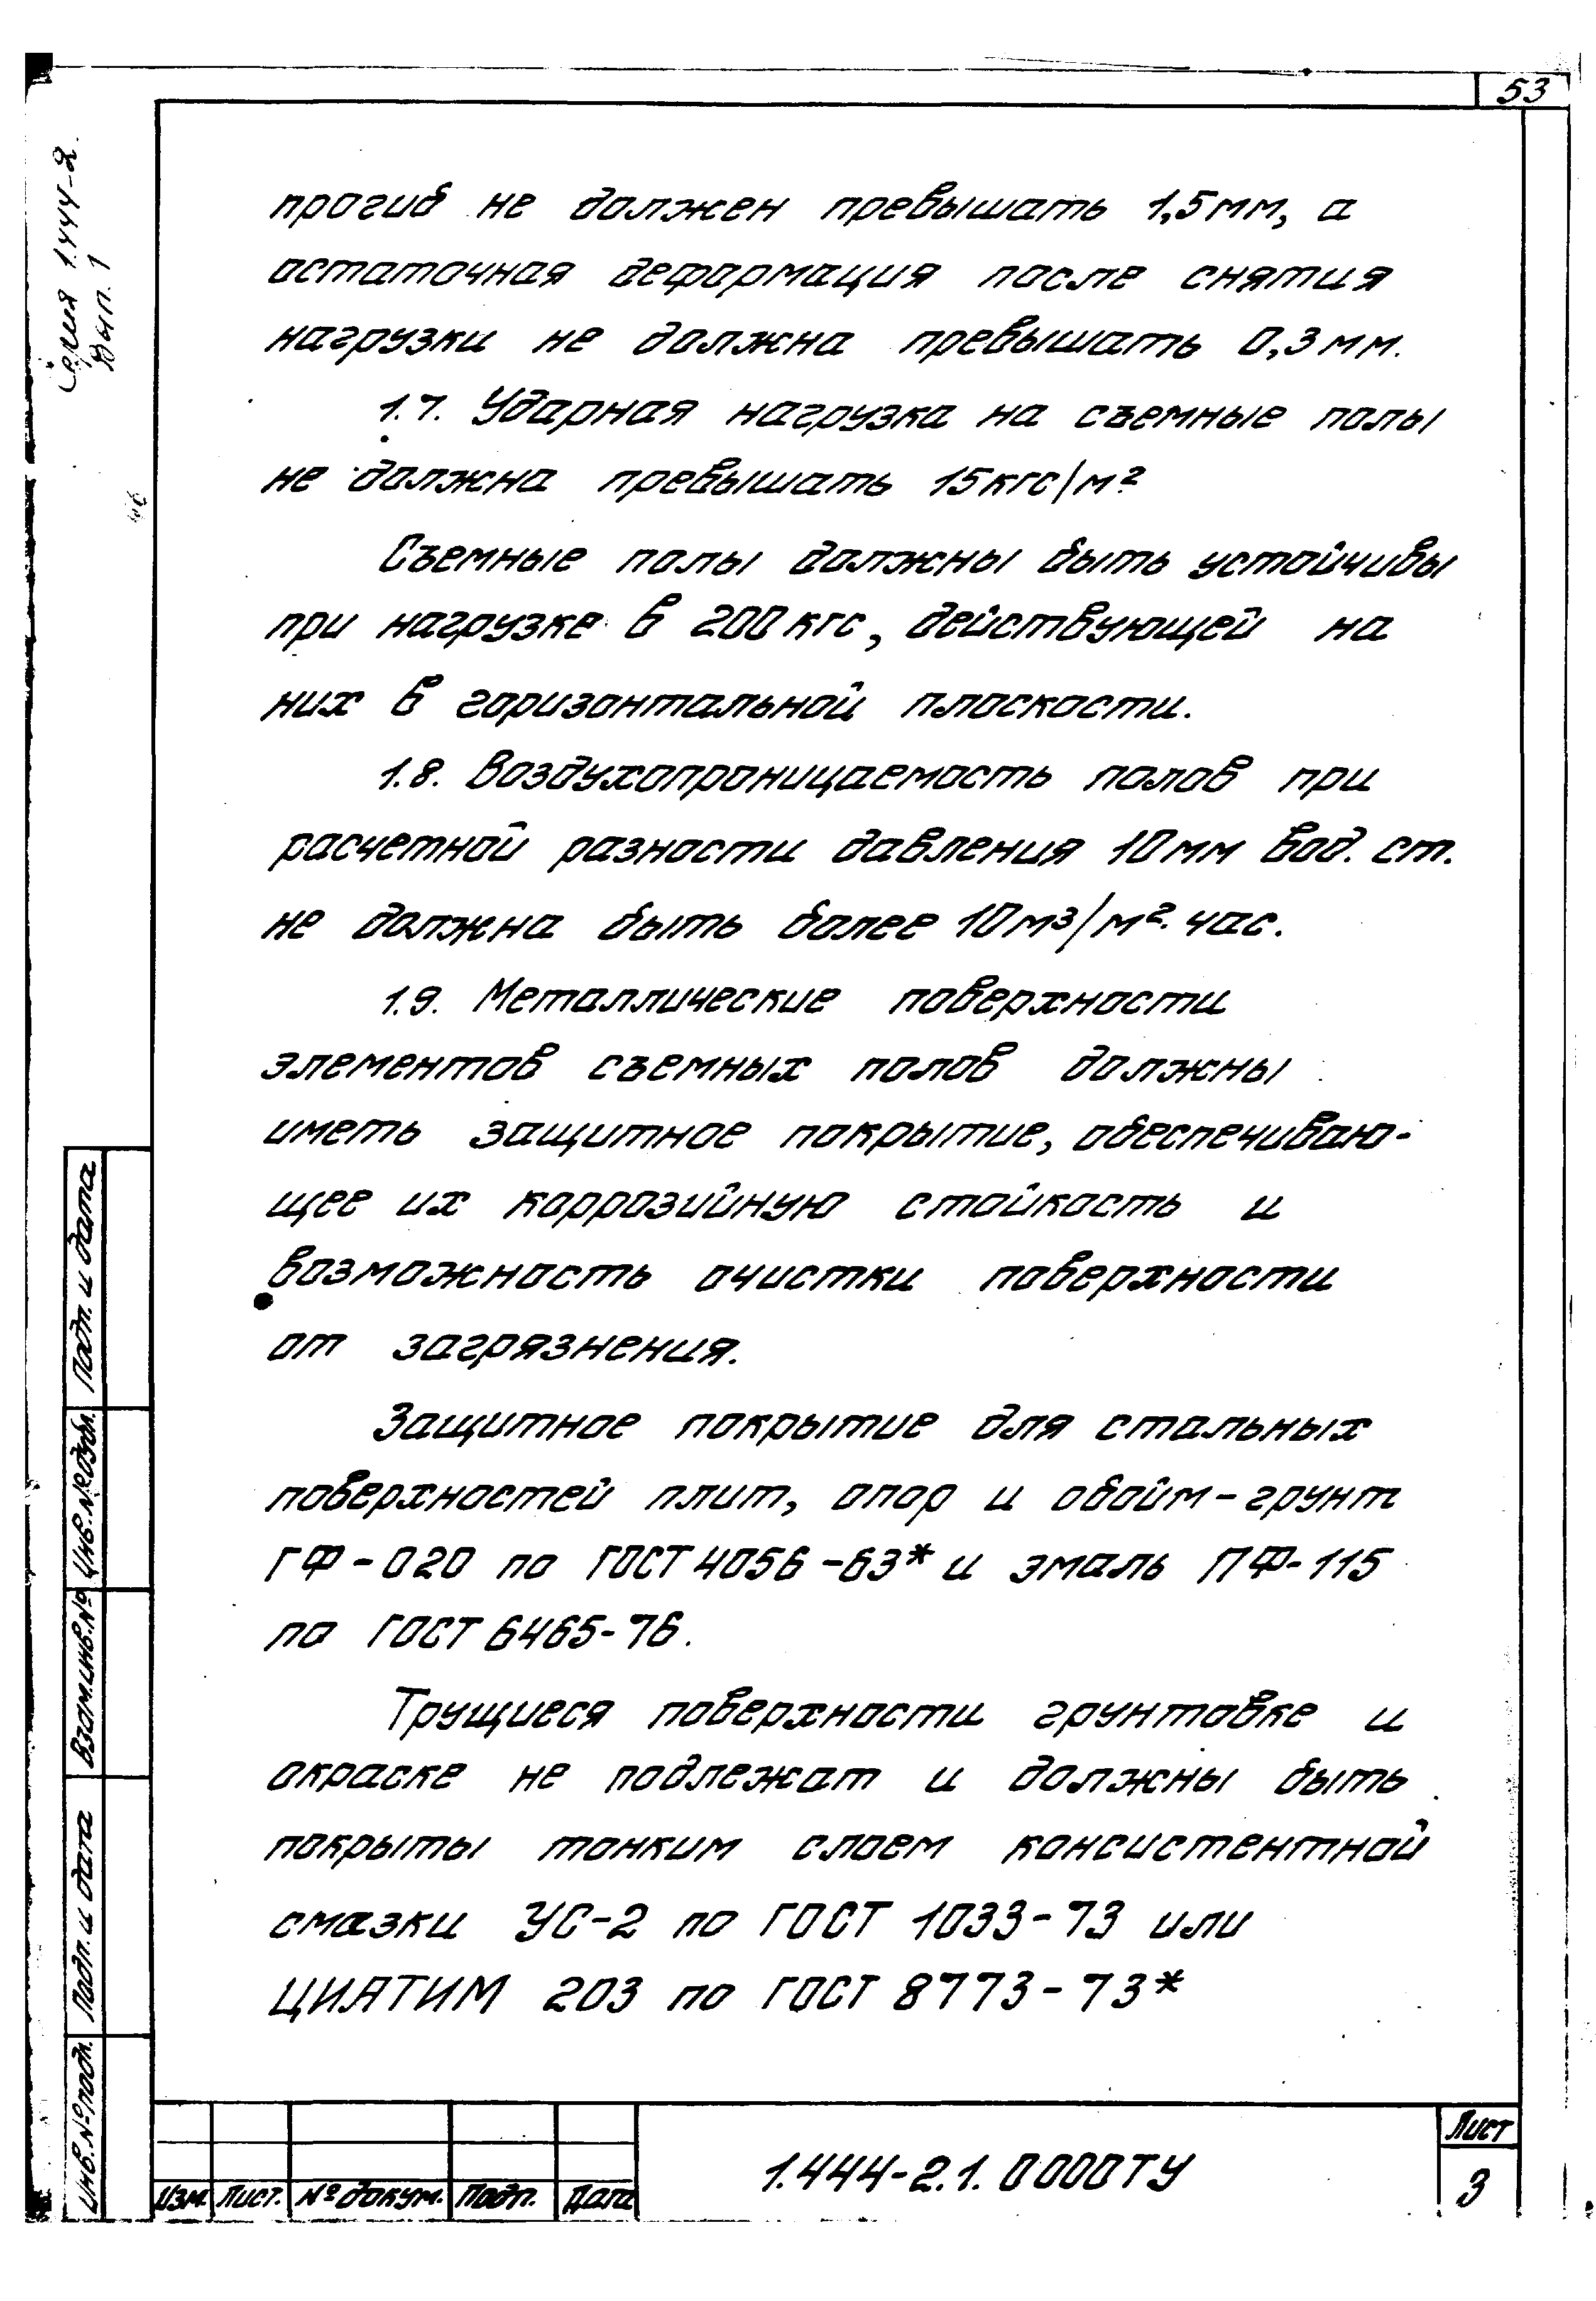 53
Серия 1.444-2
Вып. 1
прогиб не должен превышать 1,5 мм, а
остаточная деформация после снятия
нагрузки не должна превышать 0,3 мм.
1.7. Ударная нагрузка на съемные полы
не должна превышать 15 кгс/м²
Съемные полы должны быть устойчивы
при нагрузке в 200 кгс, действующей на
них в горизонтальной плоскости.
1.8. Воздухопроницаемость полов при
расчетной разности давления 10 мм вод. ст.
не должна быть более 10 м³/м². час.
1.9. Металлические поверхности
элементов съемных полов должны
иметь защитное покрытие, обеспечиваю-
щее их коррозийную стойкость и
возможность очистки поверхности
от загрязнения.
Защитное покрытие для стальных
поверхностей плит, опор и обойм - грунт
ГФ-020 по ГОСТ 4056-63* и эмаль ПФ-115
по ГОСТ 6465-76.
Трущиеся поверхности грунтовке и
окраске не подлежат и должны быть
покрыты тонким слоем консистентной
смазки УС-2 по ГОСТ 1033-73 или
ЦИАТИМ 203 по ГОСТ 8773-73*
Подп. и дата
Инв. № дубл.
Взам. инв. №
Подп. и дата
Инв. № подл.
Изм. Лист. № докум. Подп. Дата
1.444-2.1. 0000ТУ
Лист
3